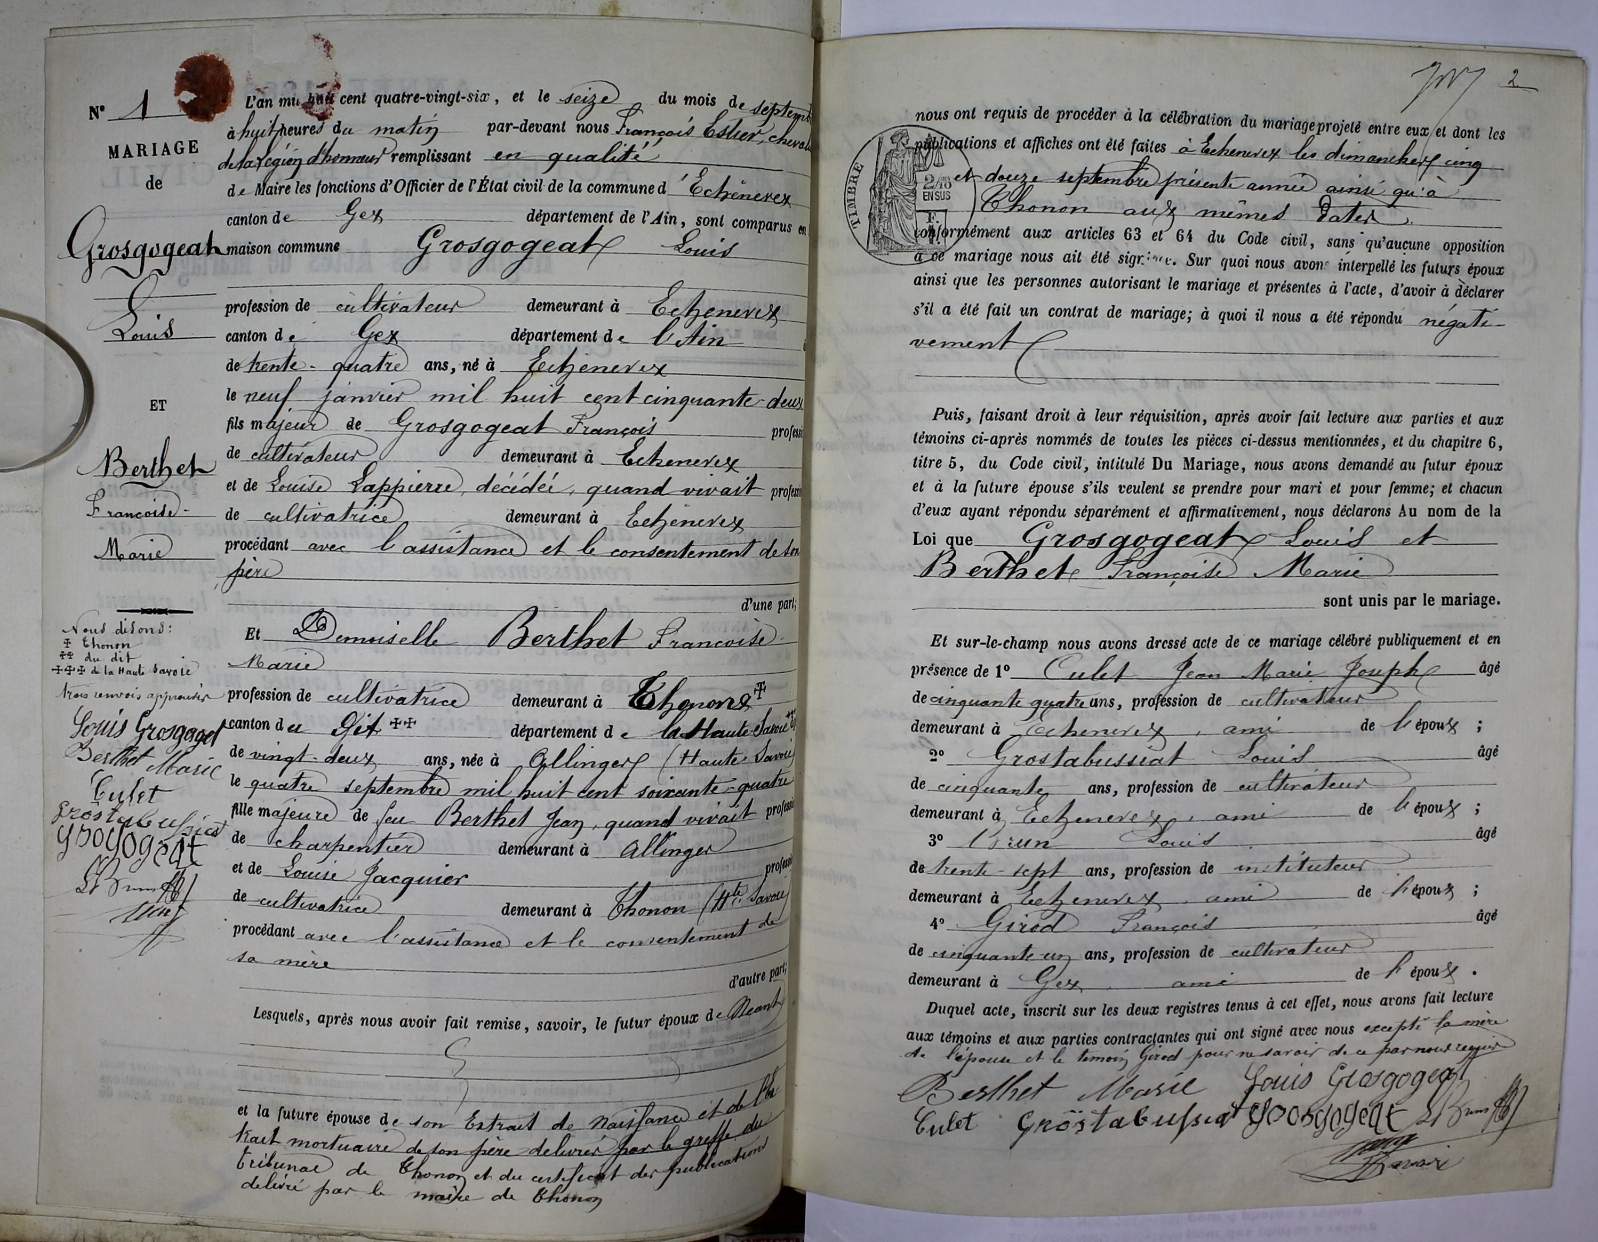 N° 1
MARIAGE
de
Grosgogeat
Louis
ET
Berthet
Françoise-
Marie
Nous disons:
+ Thonon
++ du dit
+++ de la Haute Savoie
trois renvois approuvés
Louis Grosgogeat
Berthet Marie
Culet
Gröstabussiat
grosgogeat
L Brun
L'an mil huit cent quatre-vingt-six, et le seize du mois de septembre
à huit heures du matin par-devant nous François Estier, chevalier
de la Légion d'honneur remplissant en qualité
de Maire les fonctions d'Officier de l'État civil de la commune d'Echenevex
canton de Gex département de l'Ain, sont comparus en
maison commune Grosgogeat Louis
profession de cultivateur demeurant à Echenevex
canton de Gex département de l'Ain
de trente-quatre ans, né à Echenevex
le neuf janvier mil huit cent cinquante-deux
fils majeur de Grosgogeat François professi
de cultivateur demeurant à Echenevex
et de Louise Lappierre, décédée, quand vivait professi
de cultivatrice demeurant à Echenevex
procédant avec l'assistance et le consentement de son
père
d'une part;
Et Demoiselle Berthet Françoise-
Marie
profession de cultivatrice demeurant à Thonon +
canton du dit ++ département de la Haute Savoie +++
de vingt-deux ans, née à Allinges (Haute-Savoie)
le quatre septembre mil huit cent soixante-quatre
fille majeure de feu Berthet Jean, quand vivait professi
de charpentier demeurant à Allinges
et de Louise Jacquier professi
de cultivatrice demeurant à Thonon (Hte Savoie)
procédant avec l'assistance et le consentement de
sa mère
d'autre part;
Lesquels, après nous avoir fait remise, savoir, le futur époux de Néant
et la future épouse de son Extrait de Naissance et de l'Ex
trait mortuaire de son père délivrés par le greffe du
tribunal de Thonon et du certificat des publications
délivré par le maire de Thonon
2
nous ont requis de procéder à la célébration du mariage projeté entre eux et dont les
publications et affiches ont été faites à Echenevex les dimanches cinq
et douze septembre présente année ainsi qu'à
Thonon aux mêmes dates
TIMBRE
2/10
EN SUS
conformément aux articles 63 et 64 du Code civil, sans qu'aucune opposition
à ce mariage nous ait été signifiée. Sur quoi nous avons interpellé les futurs époux
ainsi que les personnes autorisant le mariage et présentes à l'acte, d'avoir à déclarer
s'il a été fait un contrat de mariage; à quoi il nous a été répondu négati-
vement
Puis, faisant droit à leur réquisition, après avoir fait lecture aux parties et aux
témoins ci-après nommés de toutes les pièces ci-dessus mentionnées, et du chapitre 6,
titre 5, du Code civil, intitulé Du Mariage, nous avons demandé au futur époux
et à la future épouse s'ils veulent se prendre pour mari et pour femme; et chacun
d'eux ayant répondu séparément et affirmativement, nous déclarons Au nom de la
Loi que Grosgogeat Louis et
Berthet Françoise Marie
sont unis par le mariage.
Et sur-le-champ nous avons dressé acte de ce mariage célébré publiquement et en
présence de 1° Culet Jean Marie Joseph âgé
de cinquante quatre ans, profession de cultivateur
demeurant à Echenevex, ami de l'époux;
2° Grostabussiat Louis âgé
de cinquante ans, profession de cultivateur
demeurant à Echenevex, ami de l'époux;
3° Brun Louis âgé
de trente-sept ans, profession de instituteur
demeurant à Echenevex, ami de l'époux;
4° Girod François âgé
de cinquante un ans, profession de cultivateur
demeurant à Gex, ami de l'époux.
Duquel acte, inscrit sur les deux registres tenus à cet effet, nous avons fait lecture
aux témoins et aux parties contractantes qui ont signé avec nous excepté la mère
de l'épouse et le témoin Girod pour ne savoir de ce par nous requis
Berthet Marie Louis Grosgogeat
Culet Gröstabussiat grosgogeat L Brun